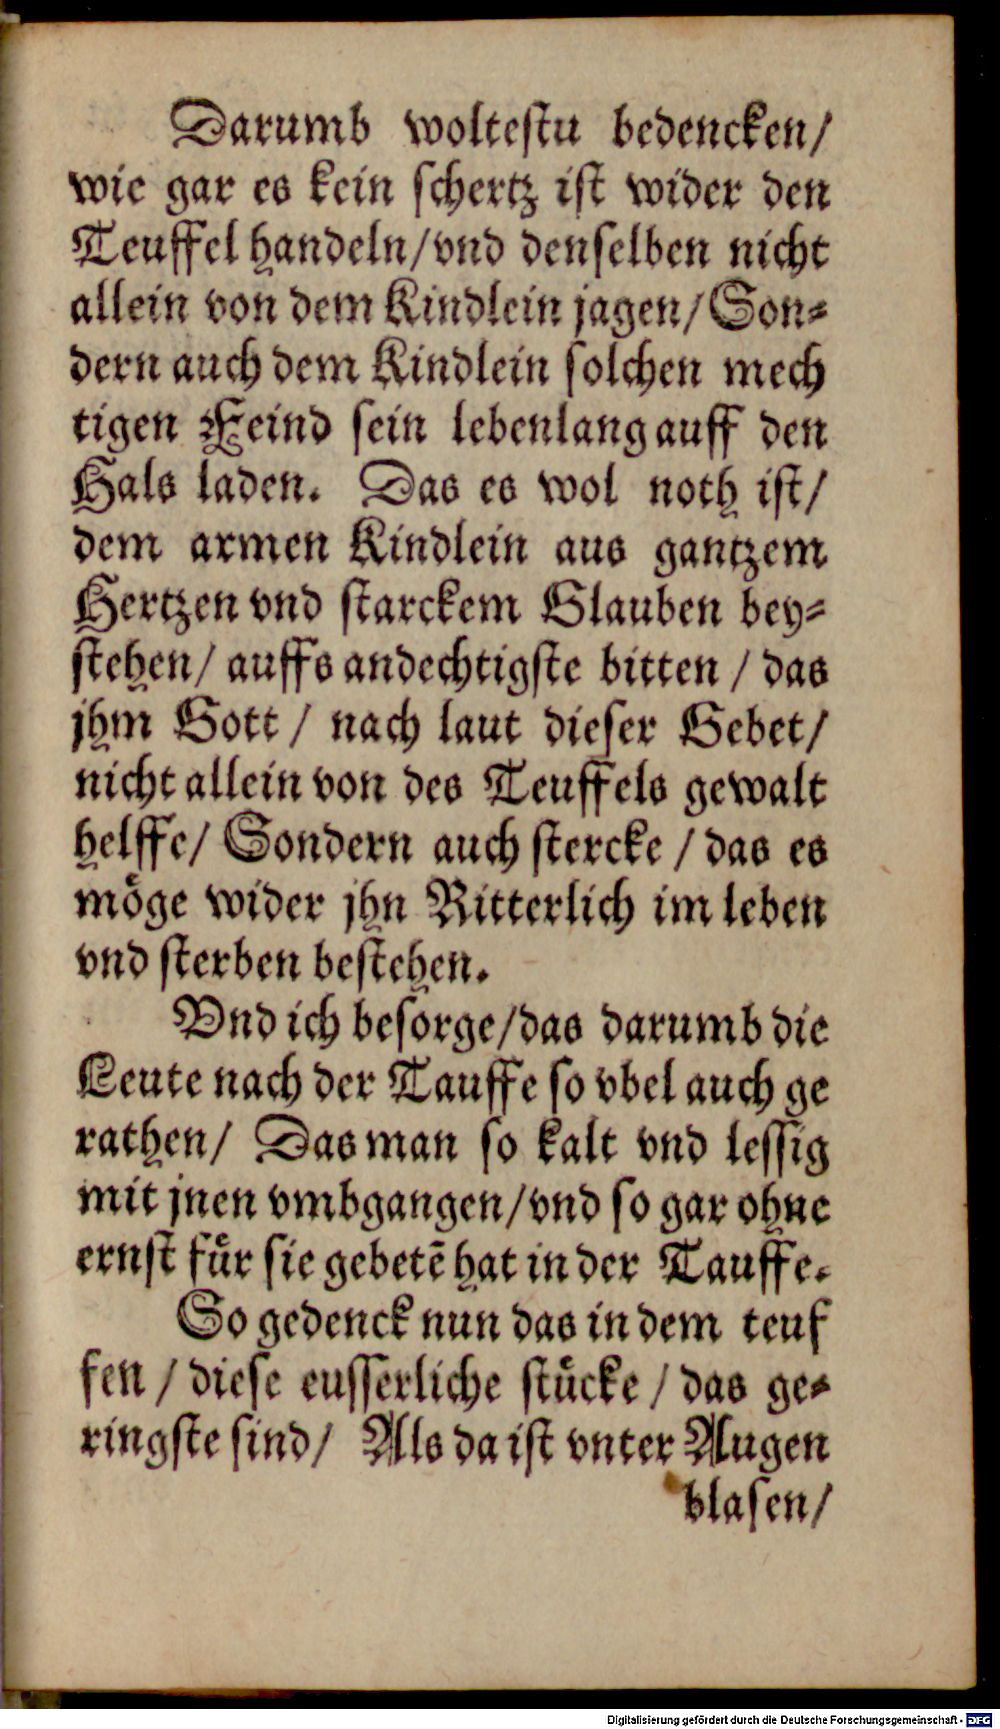 Darumb woltestu bedencken/
wie gar es kein schertz ist wider den
Teuffel handeln/vnd denselben nicht
allein von dem Kindlein jagen/Son-
dern auch dem Kindlein solchen mech
tigen Feind sein lebenlang auff den
Hals laden. Das es wol noth ist/
dem armen Kindlein aus gantzem
Hertzen vnd starckem Glauben bey-
stehen/ auffs andechtigste bitten / das
jhm Gott / nach laut dieser Gebet/
nicht allein von des Teuffels gewalt
helffe/ Sondern auch stercke / das es
möge wider jhn Ritterlich im leben
vnd sterben bestehen.
Vnd ich besorge/das darumb die
Leute nach der Tauffe so vbel auch ge
rathen/ Das man so kalt vnd lessig
mit jnen vmbgangen/vnd so gar ohne
ernst für sie gebetē hat in der Tauffe.
So gedenck nun das in dem teuf
fen / diese eusserliche stücke / das ge-
ringste sind/ Als da ist vnter Augen
blasen/
Digitalisierung gefördert durch die Deutsche Forschungsgemeinschaft - DFG